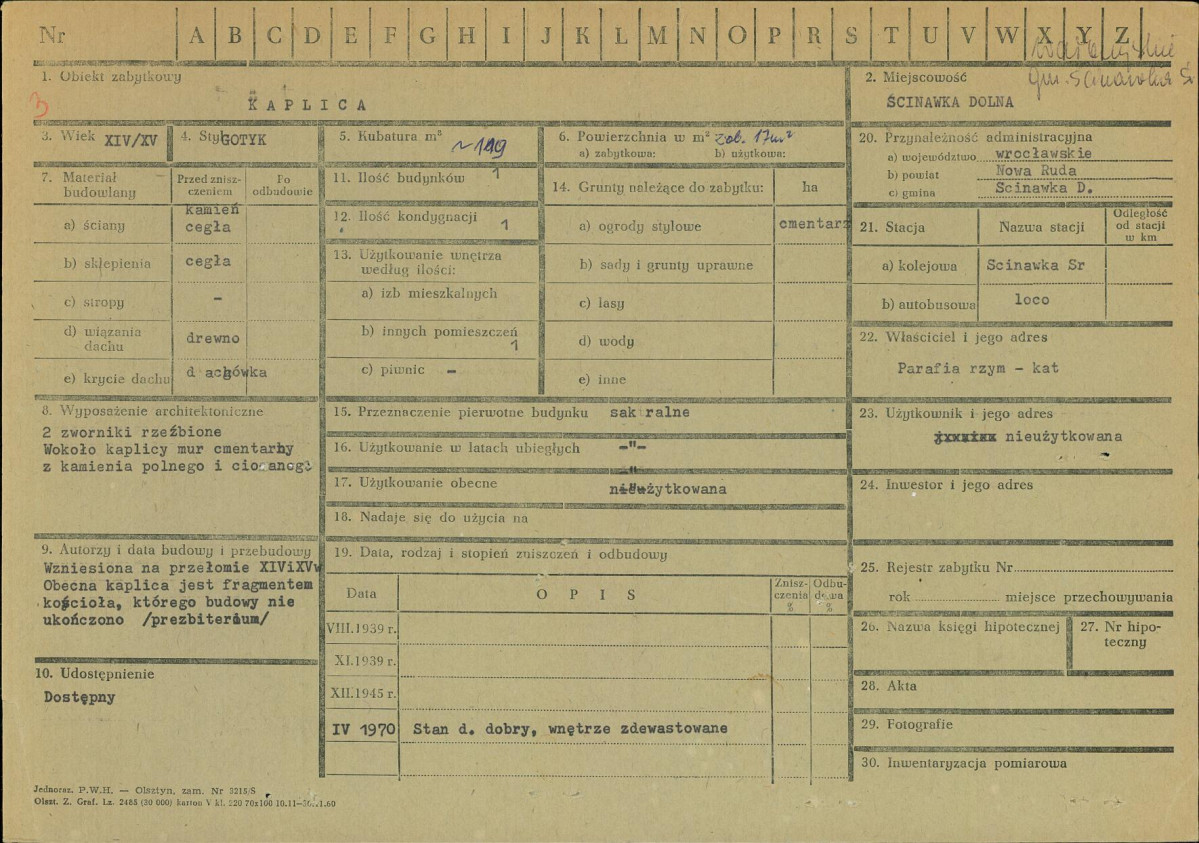 Nr A B C D E F G H I J K L M N O P R S T U V W X Y Z
gm. Ścinawka Śr
1. Obiekt zabytkowy
3
KAPLICA
2. Miejscowość
ŚCINAWKA DOLNA
3. Wiek XIV/XV
4. Styl GOTYK
5. Kubatura m³
~ 199
6. Powierzchnia w m² zab. 17m²
a) zabytkowa: b) użytkowa:
7. Materiał budowlany
Przed zniszczeniem
Po odbudowie
a) ściany kamień cegła
b) sklepienia cegła
c) stropy -
d) wiązania dachu drewno
e) krycie dachu d achówka
8. Wyposażenie architektoniczne
2 zworniki rzeźbione
Wokoło kaplicy mur cmentarny
z kamienia polnego i ciosanego
9. Autorzy i data budowy i przebudowy
Wzniesiona na przełomie XIViXVw
Obecna kaplica jest fragmentem
kościoła, którego budowy nie
ukończono /prezbiterium/
10. Udostępnienie
Dostępny
11. Ilość budynków 1
12. Ilość kondygnacji 1
13. Użytkowanie wnętrza według ilości:
a) izb mieszkalnych
b) innych pomieszczeń 1
c) piwnic -
14. Grunty należące do zabytku: ha
a) ogrody stylowe cmentarz
b) sady i grunty uprawne
c) lasy
d) wody
e) inne
15. Przeznaczenie pierwotne budynku sak ralne
16. Użytkowanie w latach ubiegłych -"-
17. Użytkowanie obecne -"-
nieużytkowana
18. Nadaje się do użycia na
19. Data, rodzaj i stopień zniszczeń i odbudowy
Data OPIS Zniszczenia % Odbudowa %
VIII.1939 r.
XI.1939 r.
XII.1945 r.
IV 1970 Stan d. dobry, wnętrze zdewastowane
20. Przynależność administracyjna
a) województwo wrocławskie
b) powiat Nowa Ruda
c) gmina Scinawka D.
21. Stacja Nazwa stacji Odległość od stacji w km
a) kolejowa Scinawka Sr
b) autobusowa loco
22. Właściciel i jego adres
Parafia rzym - kat
23. Użytkownik i jego adres
nieużytkowana
24. Inwestor i jego adres
25. Rejestr zabytku Nr
rok miejsce przechowywania
26. Nazwa księgi hipotecznej
27. Nr hipoteczny
28. Akta
29. Fotografie
30. Inwentaryzacja pomiarowa
Jednoraz. P.W.H. — Olsztyn, zam. Nr 3215/S
Olszt. Z. Graf. Lz. 2485 (20 000) karton V kl. 220 70x100